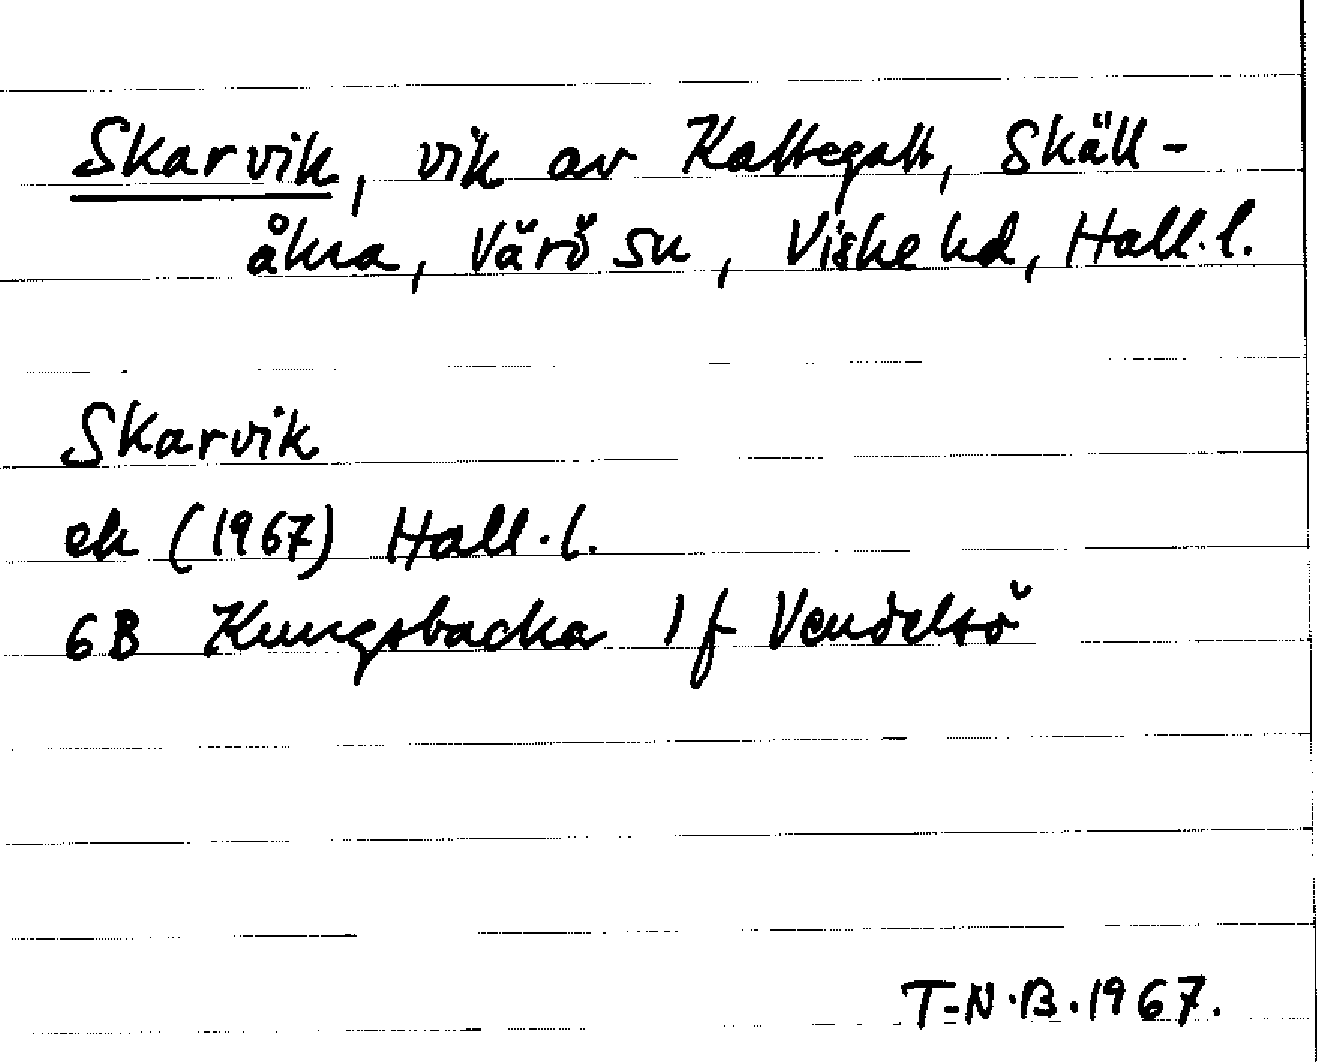 Skarvik, vik av Kattegatt, Skäll-
åkra, Värö sn, Viske hd, Hall.l.
Skarvik
ek (1967) Hall.l.
6B Kungsbacka 1f Vendelsö
T-N.B.1967.